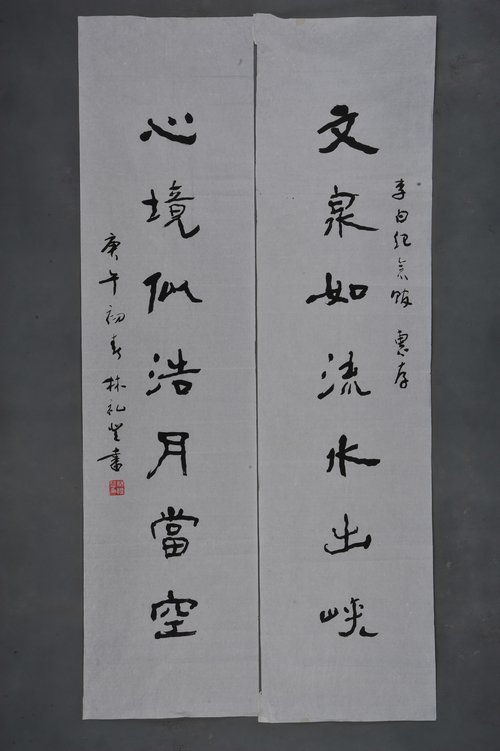 李白纪念馆 惠存
文泉如流水出峡
心境似浩月當空
庚午初春 林礼書